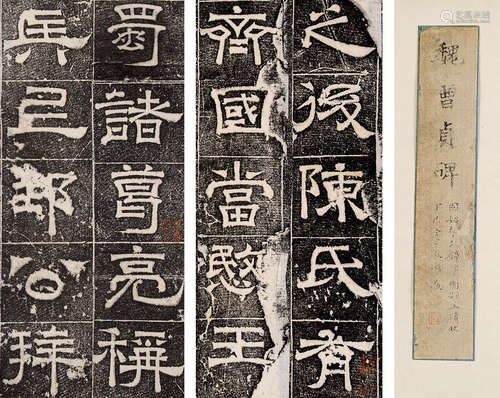 魏曹真碑
之後陳氏有
齊國當愍王
蜀諸葛亮稱
兵上邽公拜